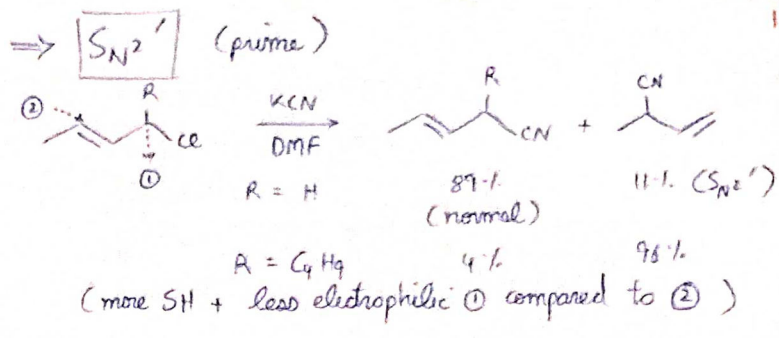 ⇒ SN2' (prime)
② R Cl ①
KCN
DMF
R CN + CN
R = H 89% (normal) 11% (SN2')
R = C4H9 4% 96%
(more SH + less electrophilic ① compared to ②)